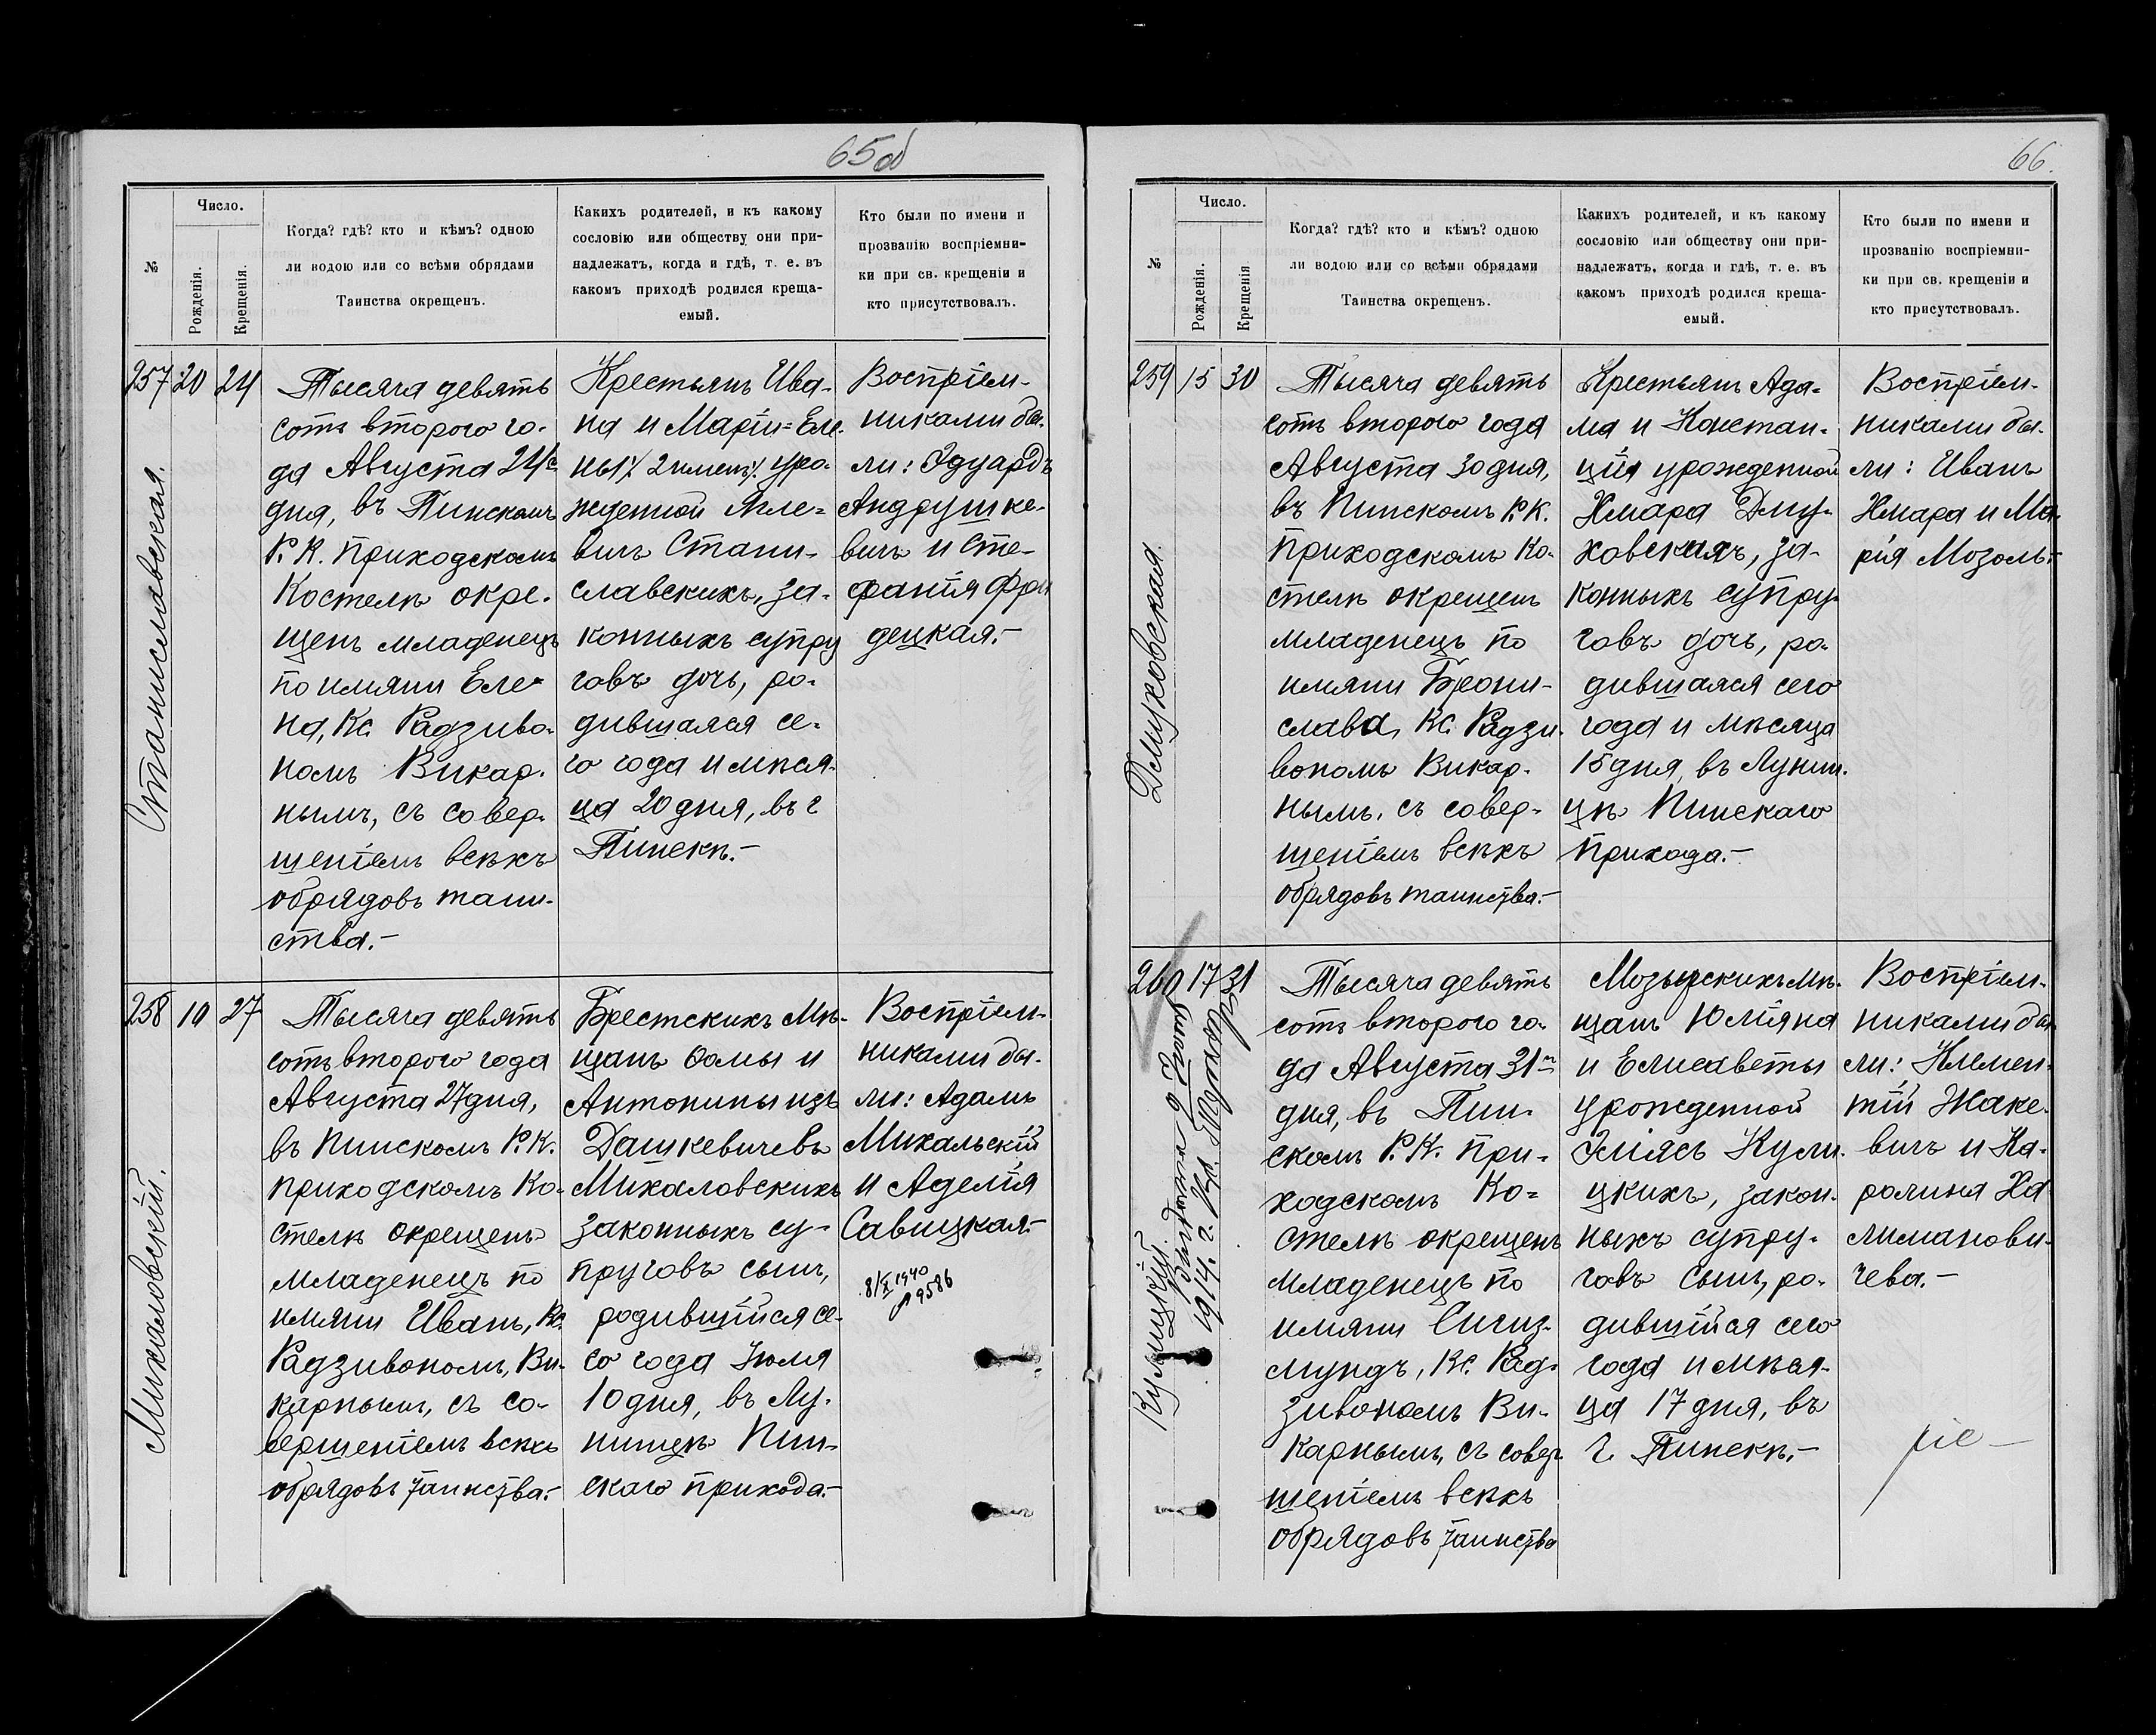 65 об
№
Число.
Рожденія.
Крещенія.
Когда? гдѣ? кто и кѣмъ? одною
ли водою или со всѣми обрядами
Таинства окрещенъ.
Какихъ родителей, и къ какому
сословію или обществу они при-
надлежатъ, когда и гдѣ, т. е. въ
какомъ приходѣ родился креща-
емый.
Кто были по имени и
прозванію воспріемни-
ки при св. крещеніи и
кто присутствовалъ.
257 20 24
Станиславская.
Тысяча девять
сотъ второго го-
да Августа 24го
дня, въ Пинскомъ
Р. К. приходскомъ
Костелѣ окре-
щенъ младенецъ
по имяни Еле-
на, Кс. Радзиво-
номъ Викар-
нымъ, съ совер-
шеніемъ всѣхъ
обрядовъ таин-
ства.-
Крестьянъ Ива-
на и Маріи=Еле-
ны /: 2 именъ :/ уро-
жденной Ягле-
вичъ Стани-
славскихъ, за-
конныхъ супру
говъ дочь, ро-
дившаяся се-
го года и мѣся-
ца 20 дня, въ г.
Пинскѣ.-
Воспріем-
никами бы-
ли: Эдуардъ
Андрушке-
вичъ и Сте-
фанія Фрон
децкая.-
258 10 27
Михаловскій.
Тысяча девять
сотъ второго года
Августа 27 дня,
въ Пинскомъ Р.К.
приходскомъ Ко-
стелѣ окрещенъ
младенецъ по
имяни Иванъ, Кс.
Радзивономъ, Ви-
карнымъ, съ со-
вершеніемъ всѣхъ
обрядовъ таинства.-
Брестскихъ Мѣ-
щанъ Ѳомы и
Антонины изъ
Дашкевичевъ
Михаловскихъ
законныхъ су-
пруговъ сынъ,
родившійся се-
го года Іюля
10 дня, въ Лу-
нинцѣ Пин-
скаго прихода.-
Воспріем-
никами бы-
ли: Адамъ
Михальскій
и Аделія
Савицкая.-
8/X 1940
9586
66.
№
Число.
Рожденія.
Крещенія
Когда? гдѣ? кто и кѣмъ? одною
ли водою или со всѣми обрядами
Таинства окрещенъ.
Какихъ родителей, и къ какому
сословію или обществу они при-
надлежатъ, когда и гдѣ, т. е. въ
какомъ приходѣ родился креща-
емый.
Кто были по имени и
прозванію воспріемни-
ки при св. крещеніи и
кто присутствовалъ.
259 15 30
Длуховская.
Тысяча девять
сотъ второго года
Августа 30 дня,
въ Пинскомъ Р.К.
приходскомъ Ко-
стелѣ окрещенъ
младенецъ по
имяни Брони-
слава, Кс. Радзи-
вономъ Викар-
нымъ, съ совер-
шеніемъ всѣхъ
обрядовъ таинства.-
Крестьянъ Ада-
ма и Констан-
ціи урожденной
Хмара Длу-
ховскихъ, за-
конныхъ супру-
говъ дочь, ро-
дившаяся сего
года и мѣсяца
15 дня, въ Лунин-
цѣ Пинскаго
прихода.-
Воспріем-
никами бы-
ли: Иванъ
Хмара и Ма-
рія Мозоль.-
260 17 31
Кулицкій.
1914. г.
Тысяча девять
сотъ второго го-
да Августа 31го
дня, въ Пин-
скомъ Р.К. При-
ходскомъ Ко-
стелѣ окрещенъ
младенецъ по
имяни Сигиз-
мундъ, Кс. Рад-
зивономъ Ви-
карнымъ, съ совер-
шеніемъ всѣхъ
обрядовъ таинства
Мозырскихъ мѣ-
щанъ Юліяна
и Елисаветы
урожденной
Эліясъ Кули-
цкихъ, закон-
ныхъ супру-
говъ сынъ, ро-
дившійся сего
года и мѣся-
ца 17 дня, въ
г. Пинскѣ.-
Воспріем-
никами бы
ли: Клемен-
тій Жаке-
вичъ и Ка-
ролина Ха
лиманови-
чева.-